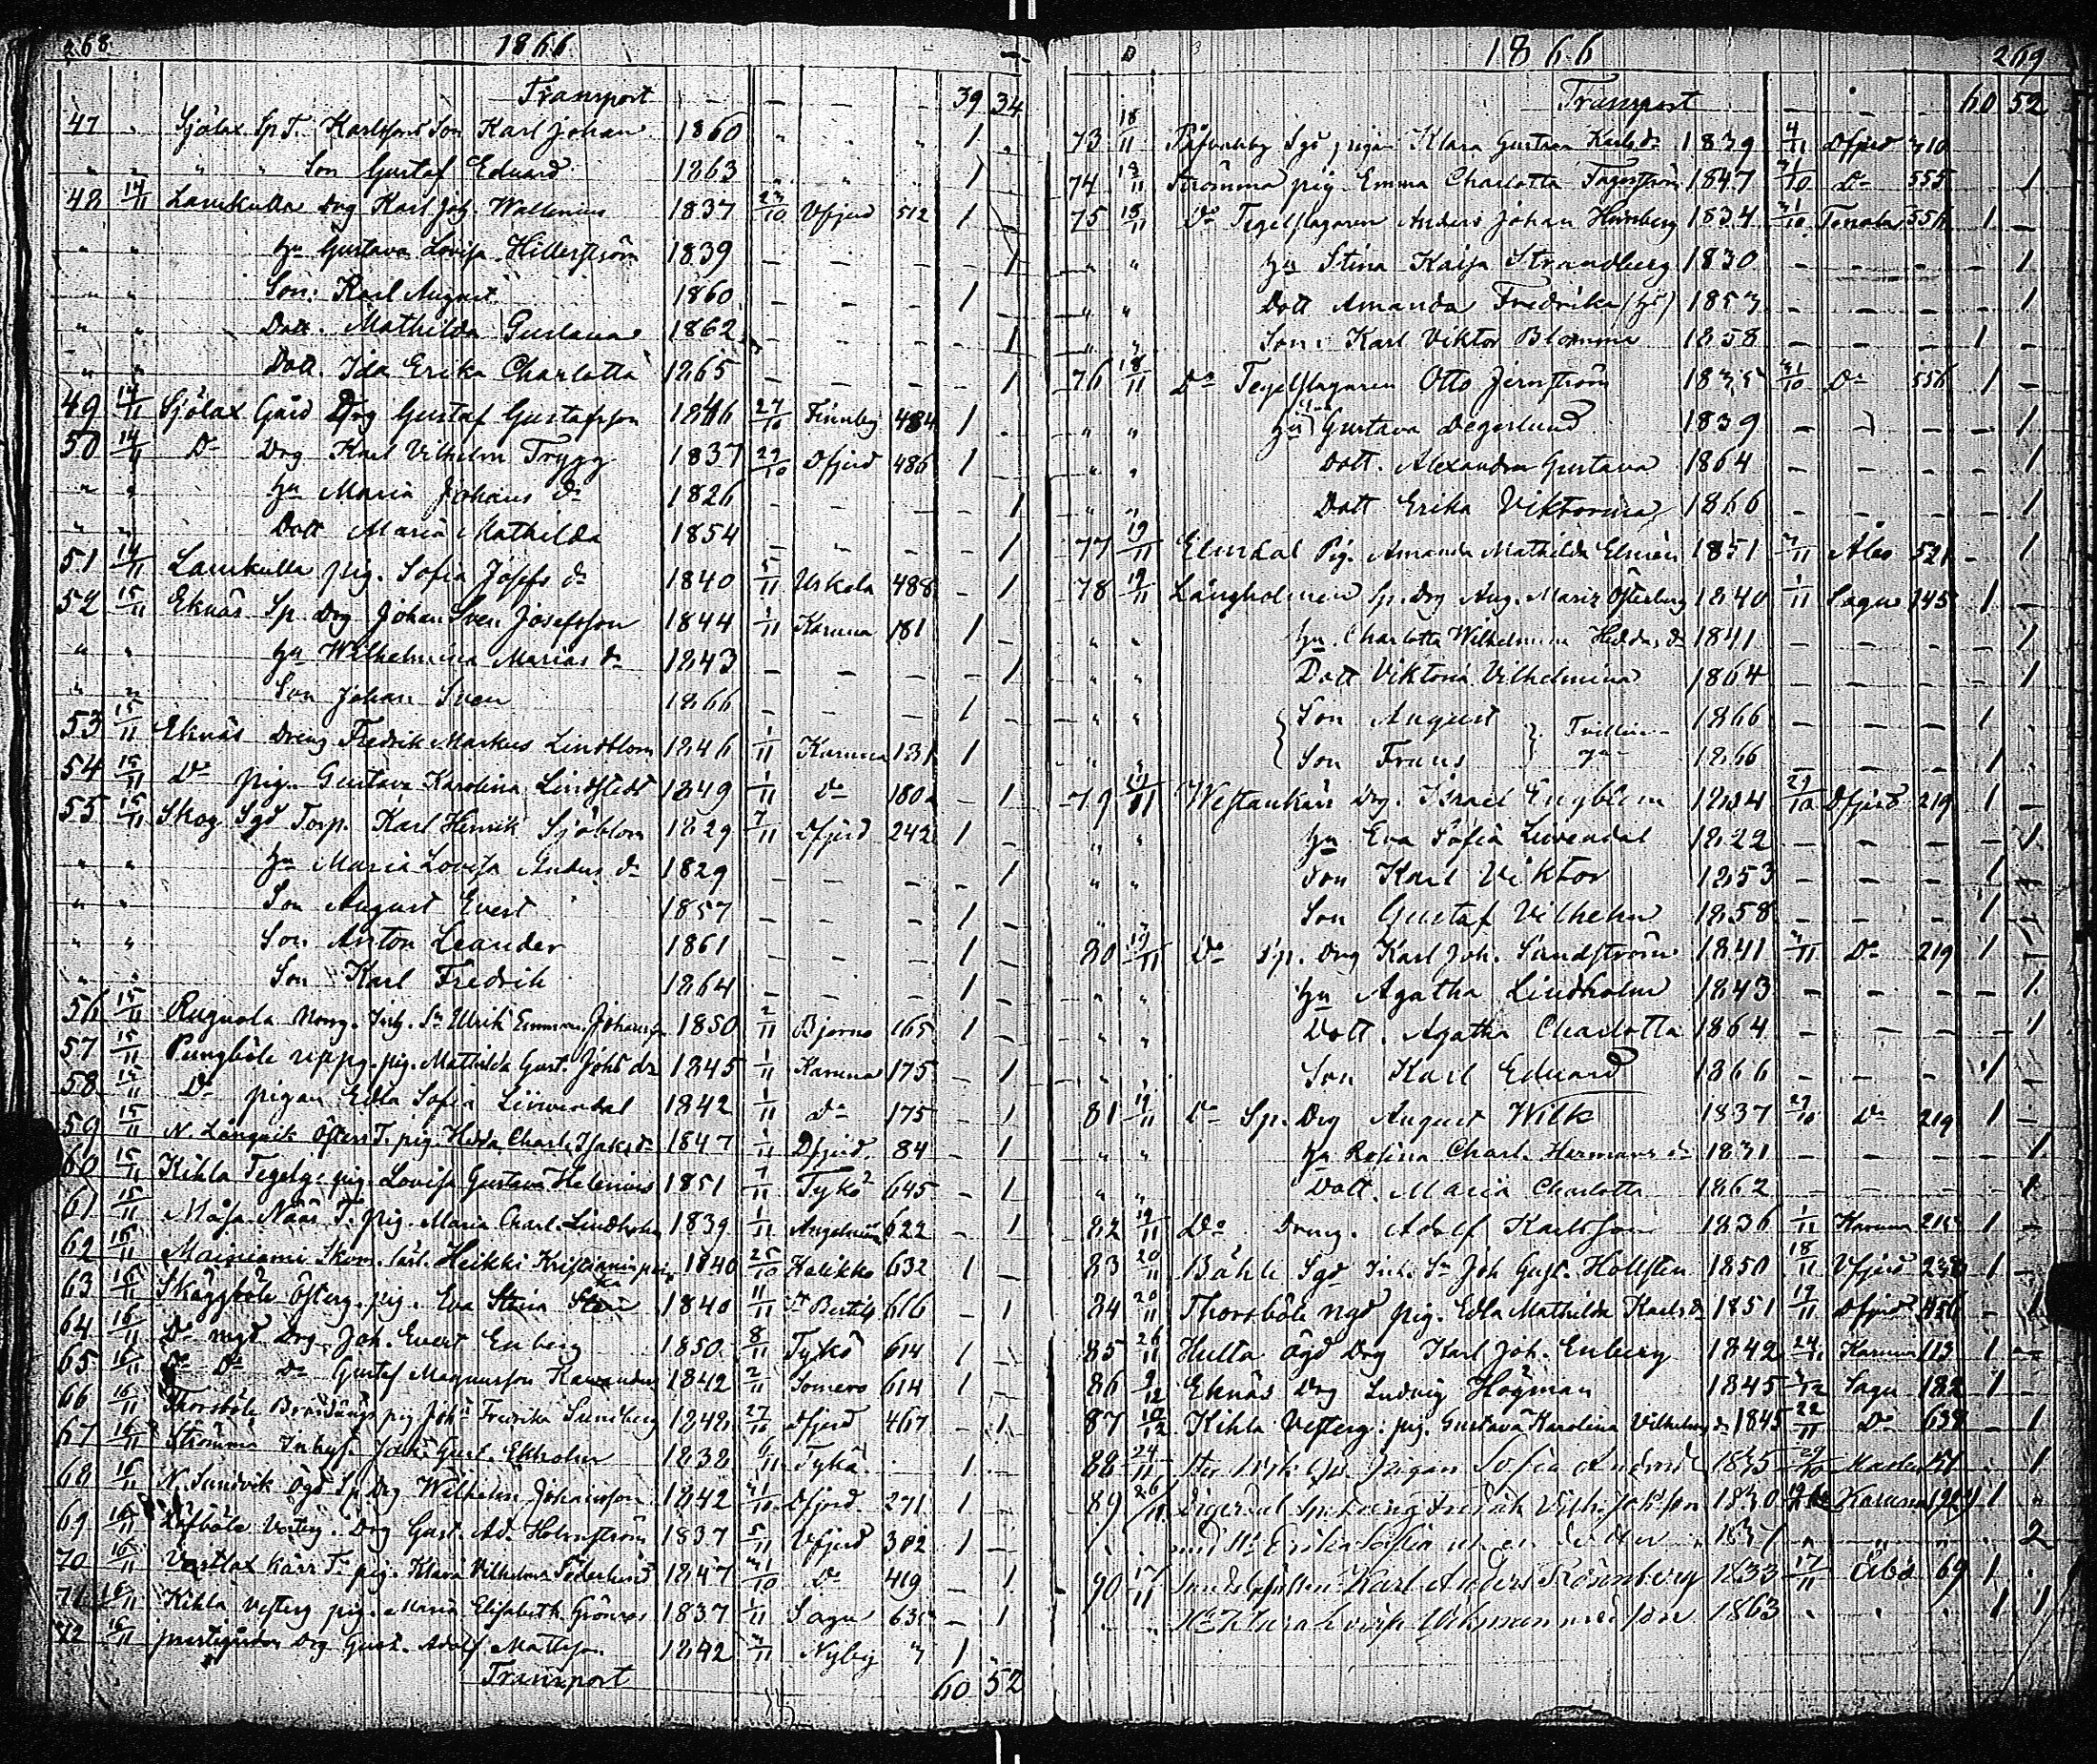 268. 1866
Transport - - - - 39 34
47 " Sjölax Sp T. Karlssons Son Karl Johan 1860 " " " 1 "
" " " " Son Gustaf Eduard 1863 " " " 1
48 14/11 Lamkulla Drg Karl Joh. Wallenius 1837 23/10 Vfjerd 512 1 -
" " Hu Gustava Lovisa Hillerström 1839 - - - - 1
" " Son Karl August 1860 - - - 1 -
" " Dott. Mathilda Gustava 1862 - - - - 1
" " Dott. Ida Erika Charlotta 1865 - - - - 1
49 14/11 Sjölax Gård Drg Gustaf Gustafsson 1846 27/10 Finnby 484 1 .
50 14/11 Do Drg Karl Vilhelm Trygg 1837 Dfjerd 486 1 -
" " Hu Maria Johans dr 1826 - - - - 1
" " Dott Maria Mathilda 1854 - - - - 1
51 14/11 Lamkulla pig. Sofia Josefs dr 1840 5/11 Uskela 488 - 1
52 15/11 Eknäs Sp. Drg Johan Sven Josefsson 1844 1/11 Karuna 181 1 -
" " Hu Wilhelmina Marias dr 1843 - - - - 1
" " Son Johan Sven 1866 - - - 1 -
53 15/11 Eknäs Dreng Fredrik Markus Lindblom 1846 1/11 Karuna 181 1 "
54 15/11 Do pig. Gustava Karolina Lindstedt 1849 1/11 do 180 - 1
55 15/11 Skog Sgd Torp. Karl Henrik Sjöblom 1829 7/11 Dfjerd 242 1 -
" " Hu Maria Lovisa Anders dr 1829 - - - - 1
" " Son August Evert 1857 - - - 1 -
" " Son Anton Leander 1861 - - - 1 -
" " Son Karl Fredrik 1864 - - - 1 -
56 15/11 Rugnola Inh. Sn Ulrik Johansson 1850 2/11 Bjerno 165 1 -
57 15/11 Pungböle pig. Mathilda Gust. Johs dr 1845 1/11 Karuna 175 - 1
58 15/11 Do pigan Edla Sofia Liewendal 1842 1/11 do 175 - 1
59 15/11 N. Långvik Östers T. pig. Hedda Charl. Isaks dr 1847 1/11 Dfjerd. 84 - 1
60 15/11 Kihla Tegelg. pig. Lovisa Gustava Helenius 1851 7/11 Tykö 645 - 1
61 15/11 Måsa Näs T. pig. Maria Charl. Lindholm 1839 1/11 Angelniemi 622 - 1
62 16/11 Mainiemi Skom. lärl. Heikki 1840 25/10 Halikko 632 1 -
63 16/11 Skäggböle Österg. pig. Eva Stina 1840 11/11 St Bertils 616 - 1
64 16/11 Do ngd Drg. Joh. Evert Enberg 1850 8/11 Tykö 614 1 -
65 16/11 Do Do Do Gustaf Magnusson 1842 2/11 Somero 614 1 -
66 16/11 Thorsböle pig Joha Fredrika Sundberg 1848 27/10 Dfjerd 467 - 1
67 16/11 Strömma Inhys. Joh. Gust. Ekholm 1838 6/11 Tykö 1 -
68 16/11 N. Sundvik Ögd Sp Drg Wilhelm Johansson 1842 31/10 Dfjerd. 271 1 -
69 16/11 Löfböle Drg Gust. Ad. Holmström 1837 5/11 Vfjerd 302 1 -
70 16/11 Vestlax Kärr T. pig. Klara Vilhelmina Söderlund 1847 31/10 Do 419 - 1
71 16/11 Kihla Vesterg pig. Maria Elisabeth Grönroos 1837 1/11 Sagu 635 - 1
72 16/11 Drg Gust. Adolf Mattsson 1842 3/11 Nyby " 1
Transport 60 52
1866 269
Transport - - - 60 52
73 18/11 Sgd pigan Klara Gustava Karls dr 1839 4/11 Dfjerd 310
74 18/11 Strömma pig Emma Charlotta Fagerström 1847 31/10 Do 555 1
75 18/11 Do Tegelslagaren Anders Johan Holmberg 1834 31/10 Tenala 1 -
" " Hu Stina Kaisa Strandberg 1830 - - - - 1
" " Dott Amanda Fredrika 1853 - - - - 1
" " Son. Karl Viktor Blomma 1858 - - - 1 -
76 18/11 Do Tegelslagaren Otto Jernström 1835 31/10 Do 556 1 -
" " Hu Gustava Degerlund 1839 - - - 1
" " Dott. Alexandra Gustava 1864 - - - - 1
" " Dott Erika Viktorina 1866 - - - - 1
77 19/11 Elmdal Pig. Amanda Mathilda Elmén 1851 Åbo 521 - 1
78 19/11 Långholmen Sp. Drg Aug. Österberg 1840 1/11 Sagu 145 1 -
" " Hu Charlotta Wilhelmina 1841 - - - - 1
Dott Viktoria Vilhelmina 1864 - - - - 1
" " Son August } Tvillin- 1866 - - - 1 .
" " Son Frans } gar 1866 - - - 1 .
79 19/11 Westankärr Drg. Israel Engblom 1824 29/10 Dfjerd 219 1 -
" " Hu Eva Sofia Liewendal 1822 - - - - 1
" " Son Karl Viktor 1853 - - - 1 -
" " Son Gustaf Vilhelm 1858 - - - 1 -
80 19/11 Do Sp. Drg Karl Joh. Sundström 1841 3/11 Do 219 1 -
" " Hu Agatha Lindholm 1843 - - - - 1
" " Dott. Agatha Charlotta 1864 - - - - 1
" " Son Karl Eduard 1866 - - - 1 -
81 19/11 Do Sp. Drg August Wilk 1837 29/10 Do 219 1 -
" " Hu Rosina Charl. Hermans dr 1831 - - - - 1
" " Dott. Maria Charlotta 1862 - - - - 1
82 19/11 Do Dreng. Adolf Karlsson 1836 1/11 Karuna 1 -
83 20/11 Böhle Sgd Inh. Sn Joh Gust. Hollsten 1850 18/11 Vfjerd 238 1 -
84 20/11 Thorsböle ngd pig. Edla Mathilda Karls dr 1851 19/11 Dfjerd 456 - 1
85 26/11 Hulta ögd Drg Karl Joh. Enberg 1842 24/11 Karuna 113 1 -
86 9/12 Eknäs Drg Ludvig Högman 1845 Sagu 182 1 -
87 10/12 Kihla Vesterg. pig. Gustava Karolina Vilhelms dr 1845 22/11 Do 638 - 1
88 24/11 pigan Sofia 1835 29/10 1
89 26/11 Fredrik Vilh. 1830 Karuna 1 "
Erika Sofia 1837 " " " 2
90 17/11 Karl Anders Rosenberg 1833 17/11 Åbo 69 1 .
Lovisa 1863 " " " 1 1